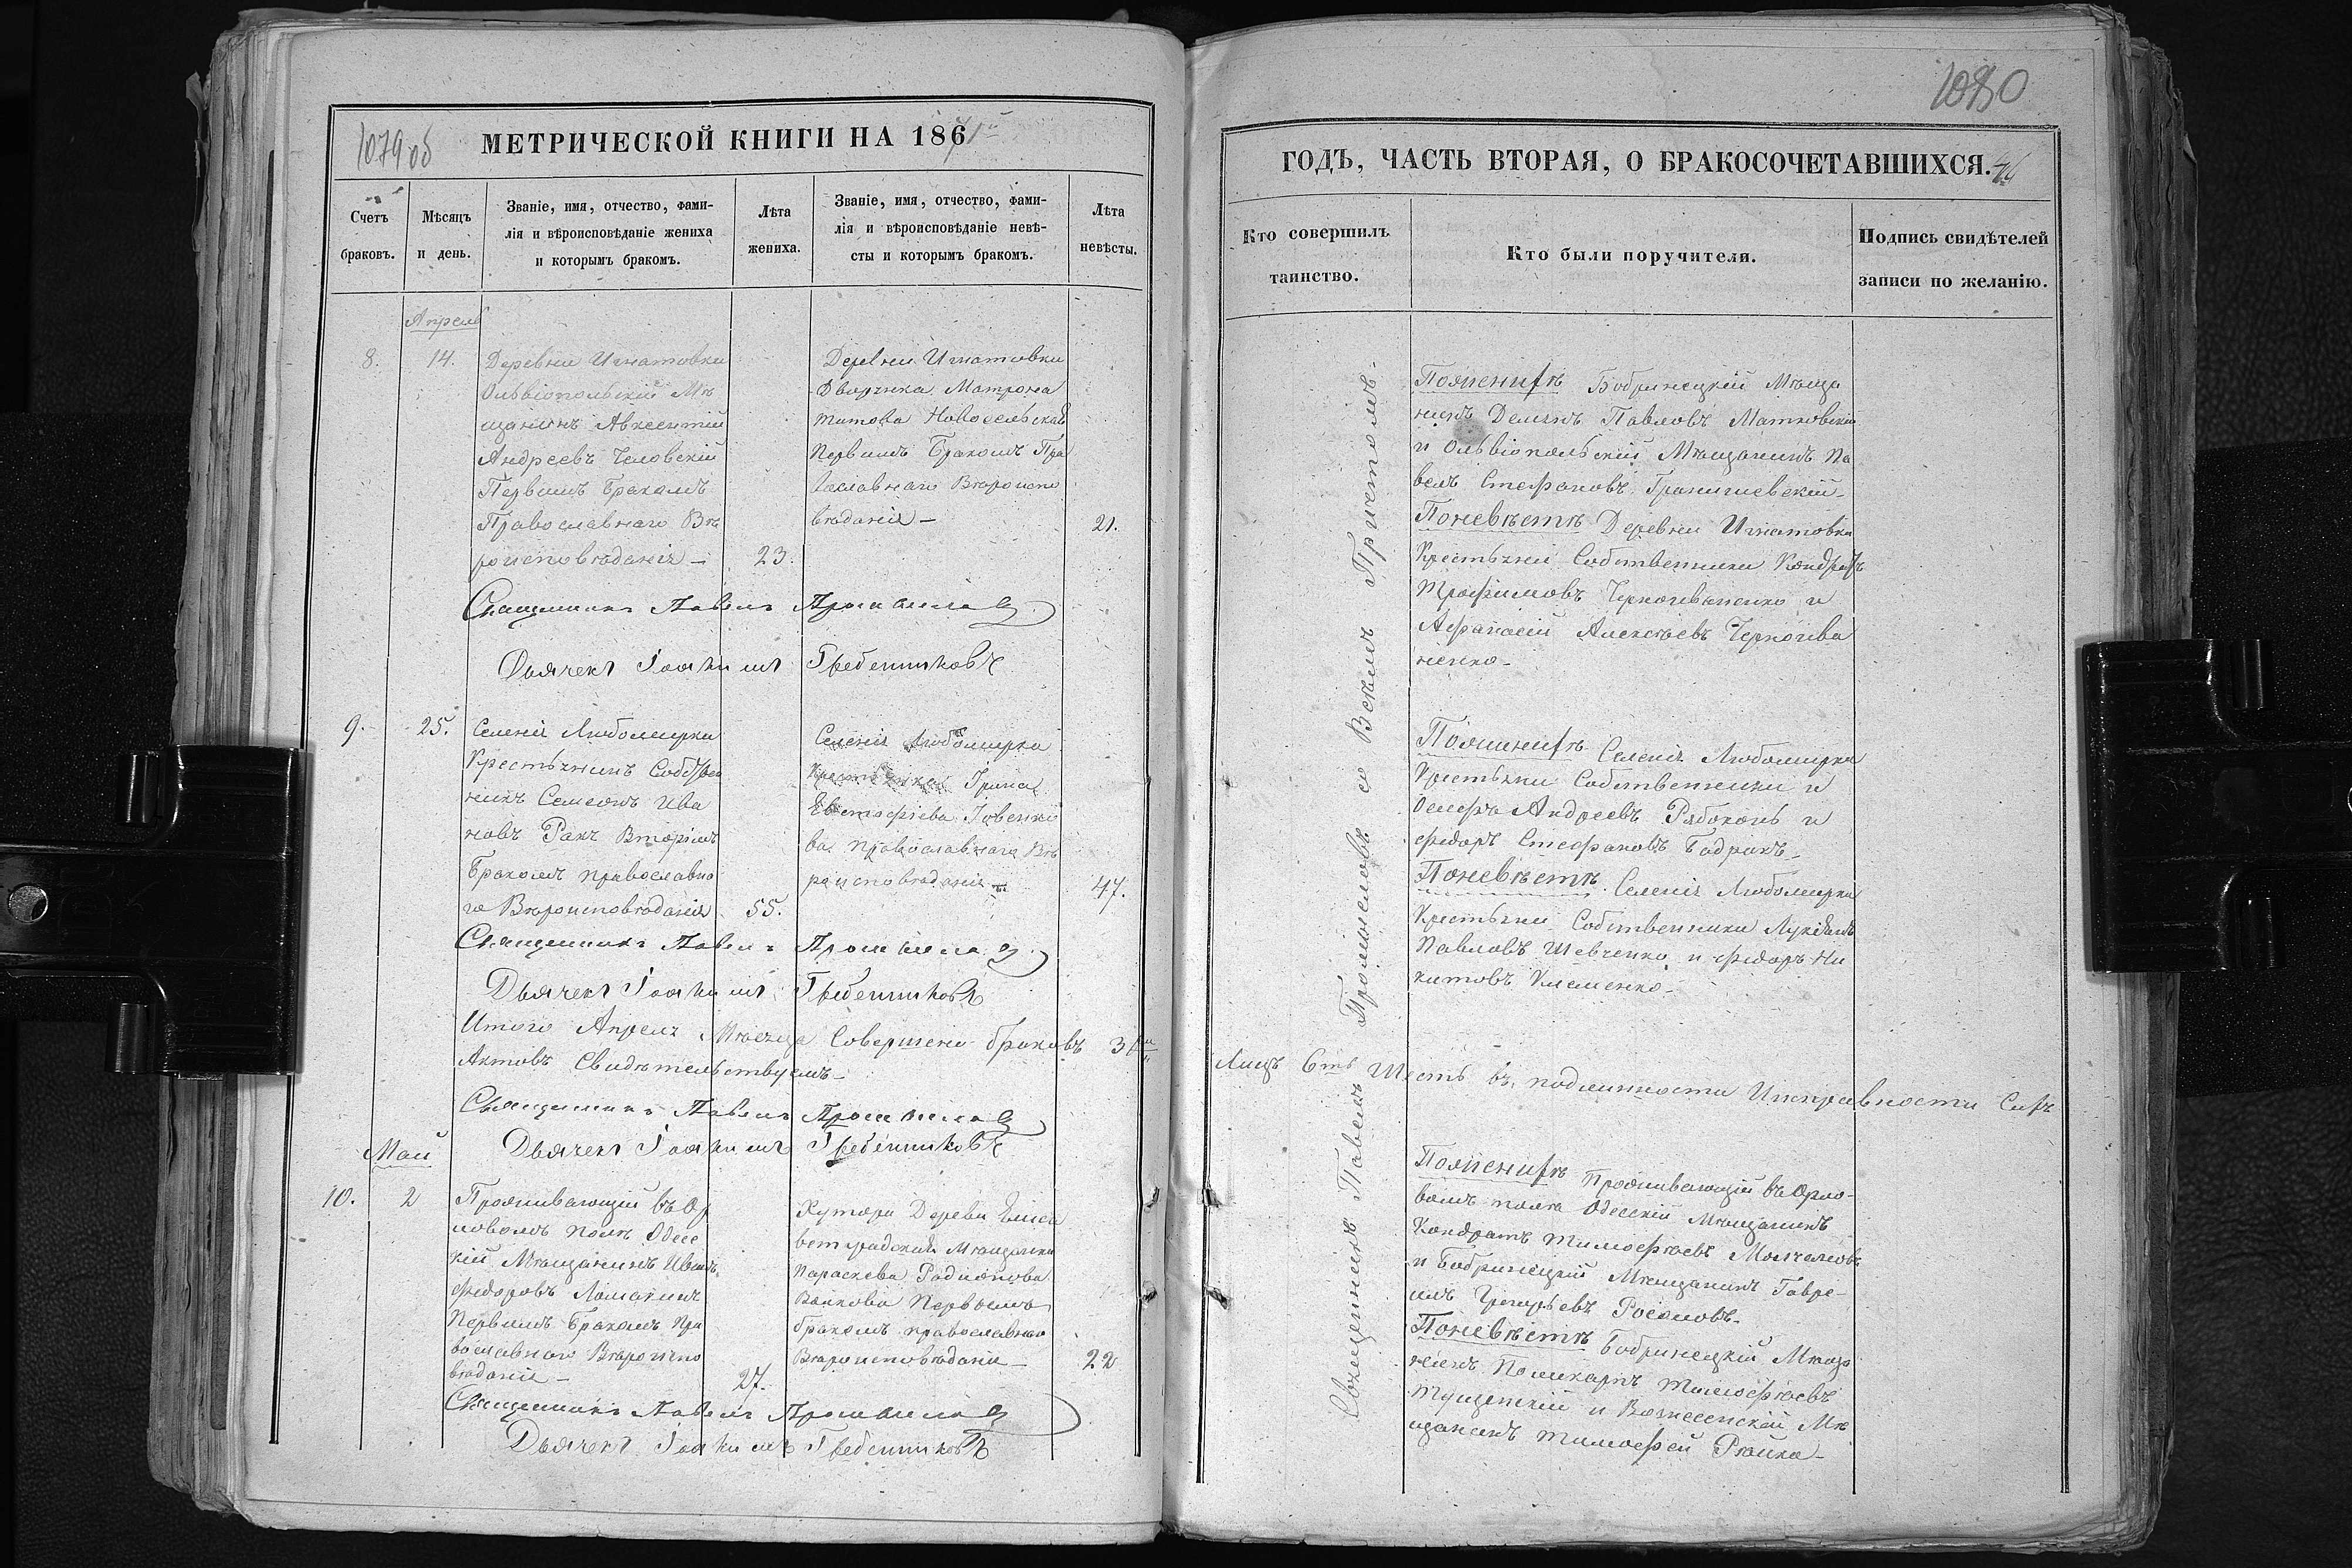 1079 об
МЕТРИЧЕСКОЙ КНИГИ НА 1871й
Счетъ браковъ.
Мѣсяцъ и день.
Званіе, имя, отчество, фами-
лія и вѣроисповѣданіе жениха
и которымъ бракомъ.
Лѣта жениха.
Званіе, имя, отчество, фами-
лія и вѣроисповѣданіе невѣ-
сты и которымъ бракомъ.
Лѣта невѣсты.
Апрель
8.
14.
Деревни Игнатовки
Ольвіопольскій Мѣ
щанинъ Авксентій
Андреевъ
Первымъ Бракомъ
Православнаго Вѣ
роисповѣданія –
23.
Деревни Игнатовки
Дворянка Матрона
Титова Новосельская
Первымъ Бракомъ Пра
вославнаго Вѣроиспо
вѣданія –
21.
Священникъ Павелъ
Дьячекъ Іоакимъ Гребенниковъ
9.
25.
Селенія Любомирки
Крестьянинъ Собствен
никъ Семеонъ Ива
новъ Ракъ Вторымъ
Бракомъ православна
го Вѣроисповѣданія
55.
Селенія Любомирки
Крестьянка Ірина
Евстафіева Іовенко
ва православнаго Вѣ
роисповѣданія –
47.
Священникъ Павелъ
Дьячекъ Іоакимъ Гребенниковъ
Итого Апреля Мѣсяца Совершено браковъ 3
Актовъ Свидѣтельствуемъ –
Священникъ Павелъ
Дьячекъ Іоакимъ Гребенниковъ
Май
10.
2
Проживающій въ Ор
ловомъ полѣ Одес
кій Мѣщанинъ Иванъ
Федоровъ Ломакинъ
Первымъ Бракомъ Пра
вославнаго Вѣроиспо
вѣданія –
27.
Хутора Елиса
ветградская Мѣщанка
Параскева Радионова
Волкова Первымъ
бракомъ православнаго
Вѣроисповѣданія –
22
Священникъ Павелъ
Дьячекъ Іоакимъ Гребенниковъ
1080
ГОДЪ, ЧАСТЬ ВТОРАЯ, О БРАКОСОЧЕТАВШИХСЯ.
Кто совершилъ
таинство.
Кто были поручители.
Подпись свидѣтелей
записи по желанію.
Священникъ Павелъ со Всѣмъ Причтомъ –
Поженихѣ Бобринецкій Мѣща
нинъ Демянъ Павловъ Матковскій
и Ольвіопольскій Мѣщанинъ Па
велъ Стефановъ
Поневѣстѣ Деревни Игнатовки
Крестьяни Собственники Кондратъ
Трофимовъ и
Афанасій Алексѣевъ
ненко –
Поженихѣ Селенія Любомирки
Крестьяни Собственники и
Осифъ Андреевъ Рябоконь и
Федоръ Стефановъ Бодракъ –
Поневѣстѣ Селенія Любомирки
Крестьяни Собственники Лукіянъ
Павловъ Шевченко и Федоръ Ни
китовъ Клименко –
Лицъ 6ть Шесть въ подлинности Исправности Сихъ
Поженихѣ Проживающій въ Орло-
вомъ полѣ Одесскій Мѣщанинъ
Кондратъ Тимофѣевъ
и Бобринецкій Мѣщанинъ Гаври-
илъ Григорьевъ
Поневѣстѣ Бобринецкій Мѣща
нинъ Поликарпъ Тимофѣевъ
и Вознесенскій Мѣ
щанинъ Тимофей